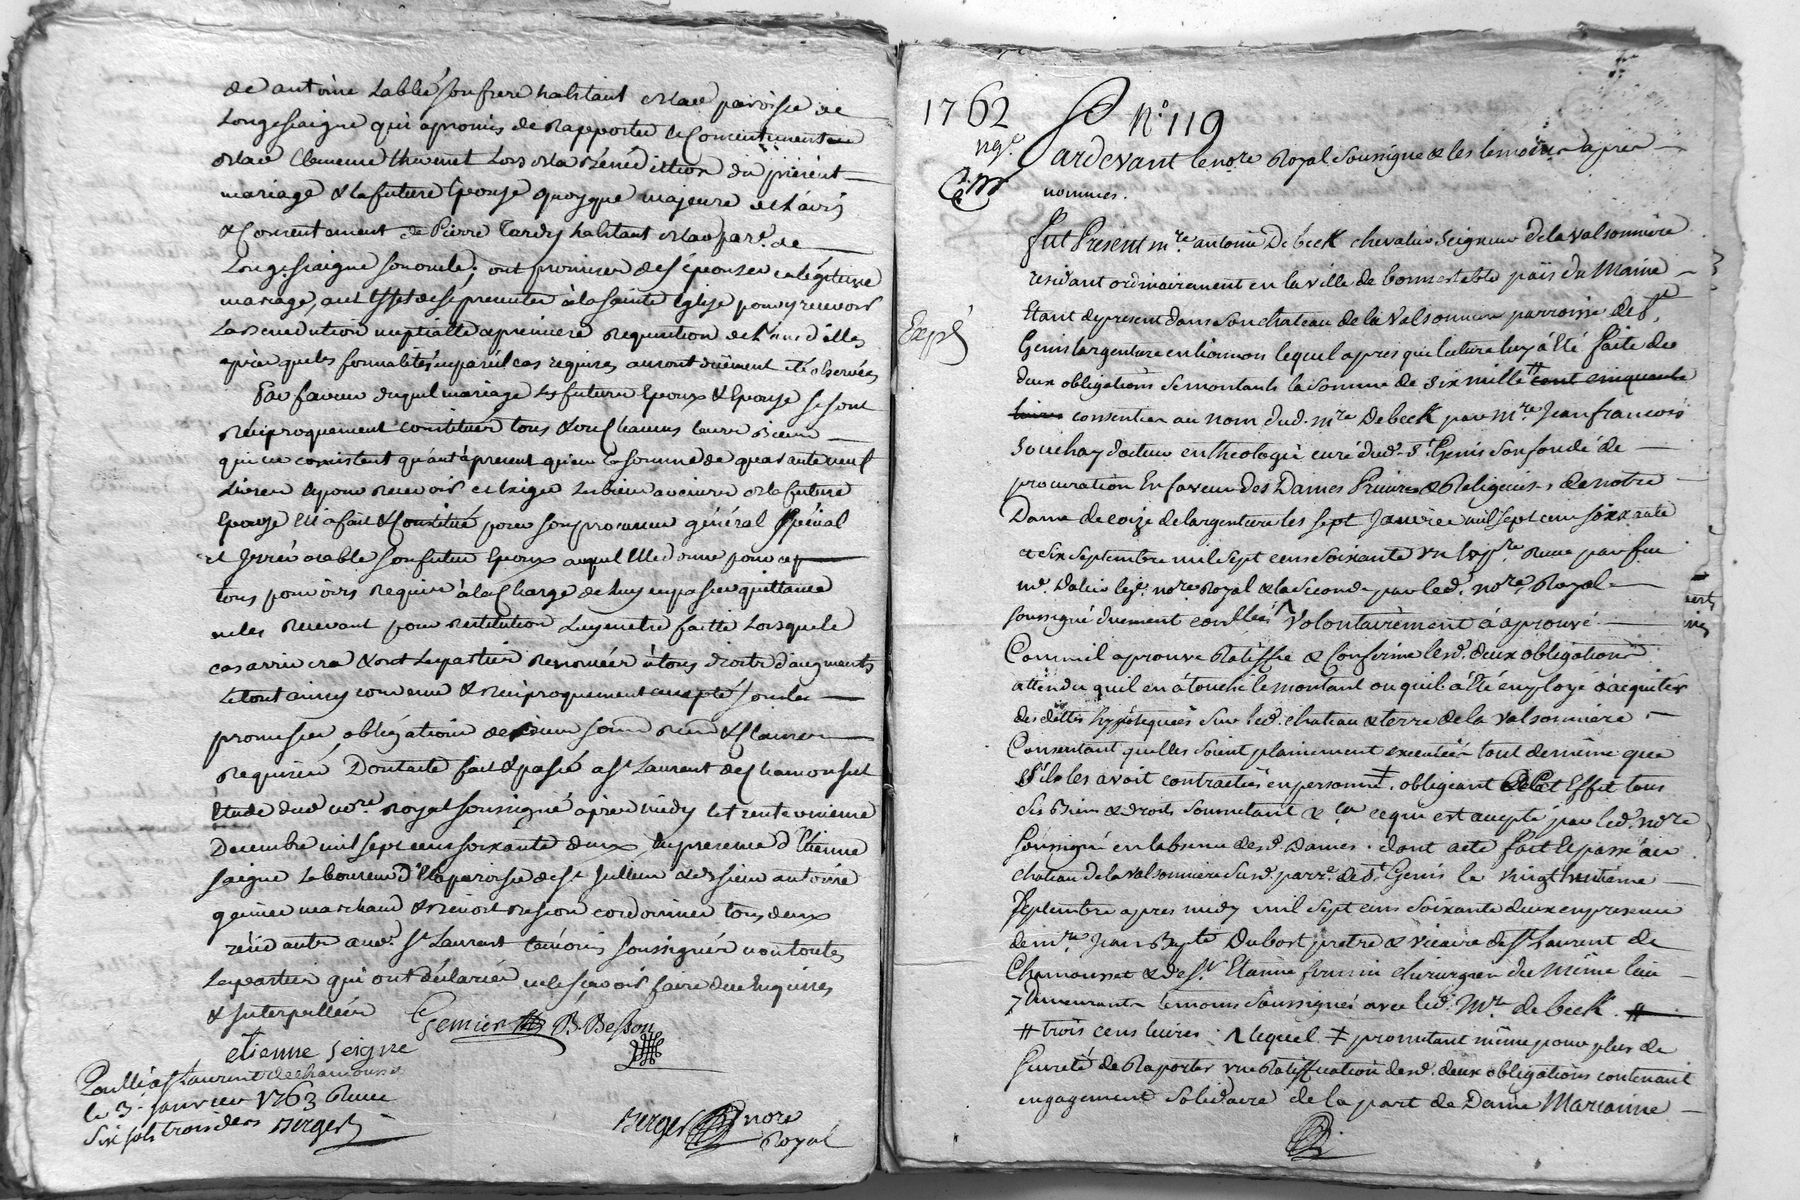 de antoine Labbé son frere habitant de lad paroisse de
Longessaigne qui a promis de Rapporter le Consentement de
de lad Clemence thevenet Lors de la Bénédiction du présent
mariage & la future Epouse quoyque majeure de L'avis
& Consentement de Pierre Tardy habitant de lad par.e de
Longessaigne son oncle; ont promis de s'épouser en légitime
mariage, a cet Effet de se présenter à la sainte Eglise pour y recevoir
La Bénédiction nuptialle a premiere Requisition de L'un d'elles
après que les formalités en pareil cas requises auront duëment été observées
En faveur duquel mariage Les futurs Epoux & Epouse se sont
Réciproquement constitués tous & uns Chacuns leurs Biens
qui ne consistent qu'ant à present qu'en La somme de quarante neuf
Livres & pour Recevoir et Exiger Les biens avenir de la future
Epouse Elle a fait & Constitué pour son procureur général spécial
et Irrévocable son futur Epoux auquel Elle donne pour ce
tous pouvoirs Requis à la Charge de Luy en passer quittance
en les Recevant pour Restitution Luy en etre faitte Lorsque le
cas arrivera & ont Les parties Renoncées à tous droits d'augments
Le tout ainsy convenu & Réciproquement accepté sous les
promesses obligations de Biens soumissions Renonciations & Clauses
Requises Dont acte fait & passé a St Laurent de Chamousset
étude dud nore Royal soussigné après midy Le trente unieme
Decembre mil sept cens soixante deux En presence d'Etienne
Saigne Laboureur de la paroisse de St Jullien & de sieur antoine
gemier marchand & Benoit Besson cordonnier tous deux
residants aud. St Laurent témoins soussignés non toutes
Les parties qui ont déclarées ne le sçavoir faire de ce Enquises
& Interpellées Gemier B. Besson
etienne Seigne
Controllé a St Laurent de chamousset
le 3. janvier 1763 Reçu
Six sols trois ders Berger
Berger nore
Royal
1762
N° 119
Pardevant le nore Royal soussigné & les temoins après
nommés.
Exp.é
fut Present mre antoine Debeck chevalier seigneur de la Valsonnière
residant ordinairement en la ville de bonnestable païs du Maine
Etant de present dans son chateau de la Valsonniere parroisse de St
Genis largentiere en lionnois lequel apres que lecture luy a été faite de
deux obligations se montants la somme de six mille # cent cinquante
livres consenties au nom dud. mre Debeck par mre Jean francois
Souchay docteur en theologie curé dud. St Genis son fondé de
procuration En faveur des Dames Prieure & Religieuses de notre
Dame de coize de largentiere les sept Janvier mil sept cens soixante
et six septembre mil sept cens soixante un la pre Reçue par feu
me Dalin lejne nore Royal & la seconde par led. nore Royal
soussigné duement conllés ^ Volontairement a aprouvé
Comme il aprouve Ratiffie & Confirme lesd. deux obligations
attendu qu'il en a touché le montant ou qu'il a été employé a acquiter
des dettes hypotequées sur led. chateau & terre de la Valsonniere
Consentant qu'elles soient plainement executées tout de même que
s'il les avoit contractées en personne ‡. obligeant a Cet Effet tous
ses Biens & droits soumettant & ca ce qui est accepté par led. nore
Soussigné en labsence desd. Dames. dont acte fait & passé au
chateau de la Valsonniere susd. parre de St Genis le vingt huitième
Septembre apres midy mil sept cens soixante deux en presence
de mre Jean Bapte Dubost pretre & vicaire de St Laurent de
Chamousset & de Sr Etienne firmin chirurgien du Même lieu
y Demeurants temoins Soussignés avec led. Mre debeck. #
# trois cens livres. ^ lequel ‡ promettant même pour plus de
Sureté de Raporter une Ratiffication desd. deux obligations contenant
engagement Solidaire de la part de Dame Marianne